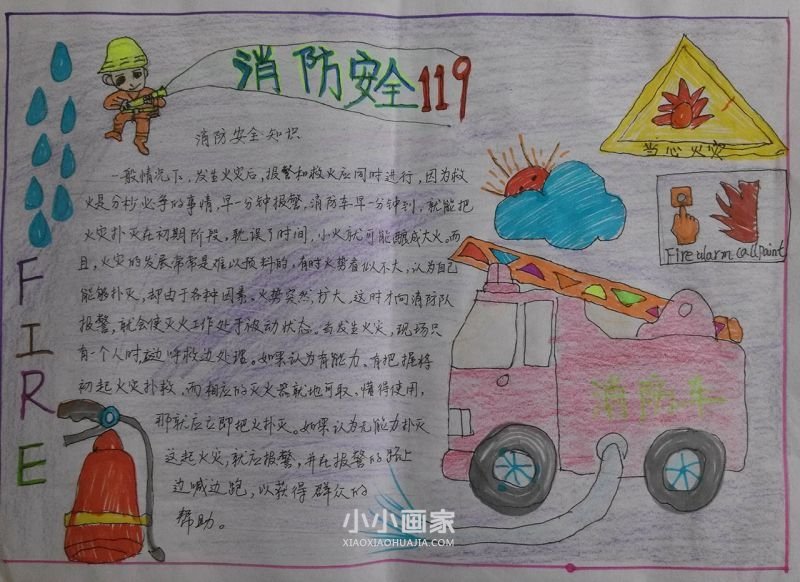 消防安全119
消防安全知识
一般情况下,发生火灾后,报警和救火应同时进行,因为救
火是分秒必争的事情,早一分钟报警,消防车早一分钟到,就能把
火灾扑灭在初期阶段,耽误了时间,小火就可能酿成大火。而
且,火灾的发展常常是难以预料的,有时火势看似不大,认为自己
能够扑灭,却由于各种因素,火势突然扩大,这时才向消防队
报警,就会使灭火工作处于被动状态。当发生火灾,现场只
有一个人时应边呼救边处理。如果认为有能力、有把握将
初起火灾扑救,而相应的灭火器就地可取、懂得使用,
那就应立即把火扑灭。如果认为无能力扑灭
这起火灾,就应报警,并在报警的路上
边喊边跑,以获得群众的
帮助。
FIRE
当心火灾
Fire alarm call point
消防车
小小画家
XIAOXIAOHUAJIA.COM